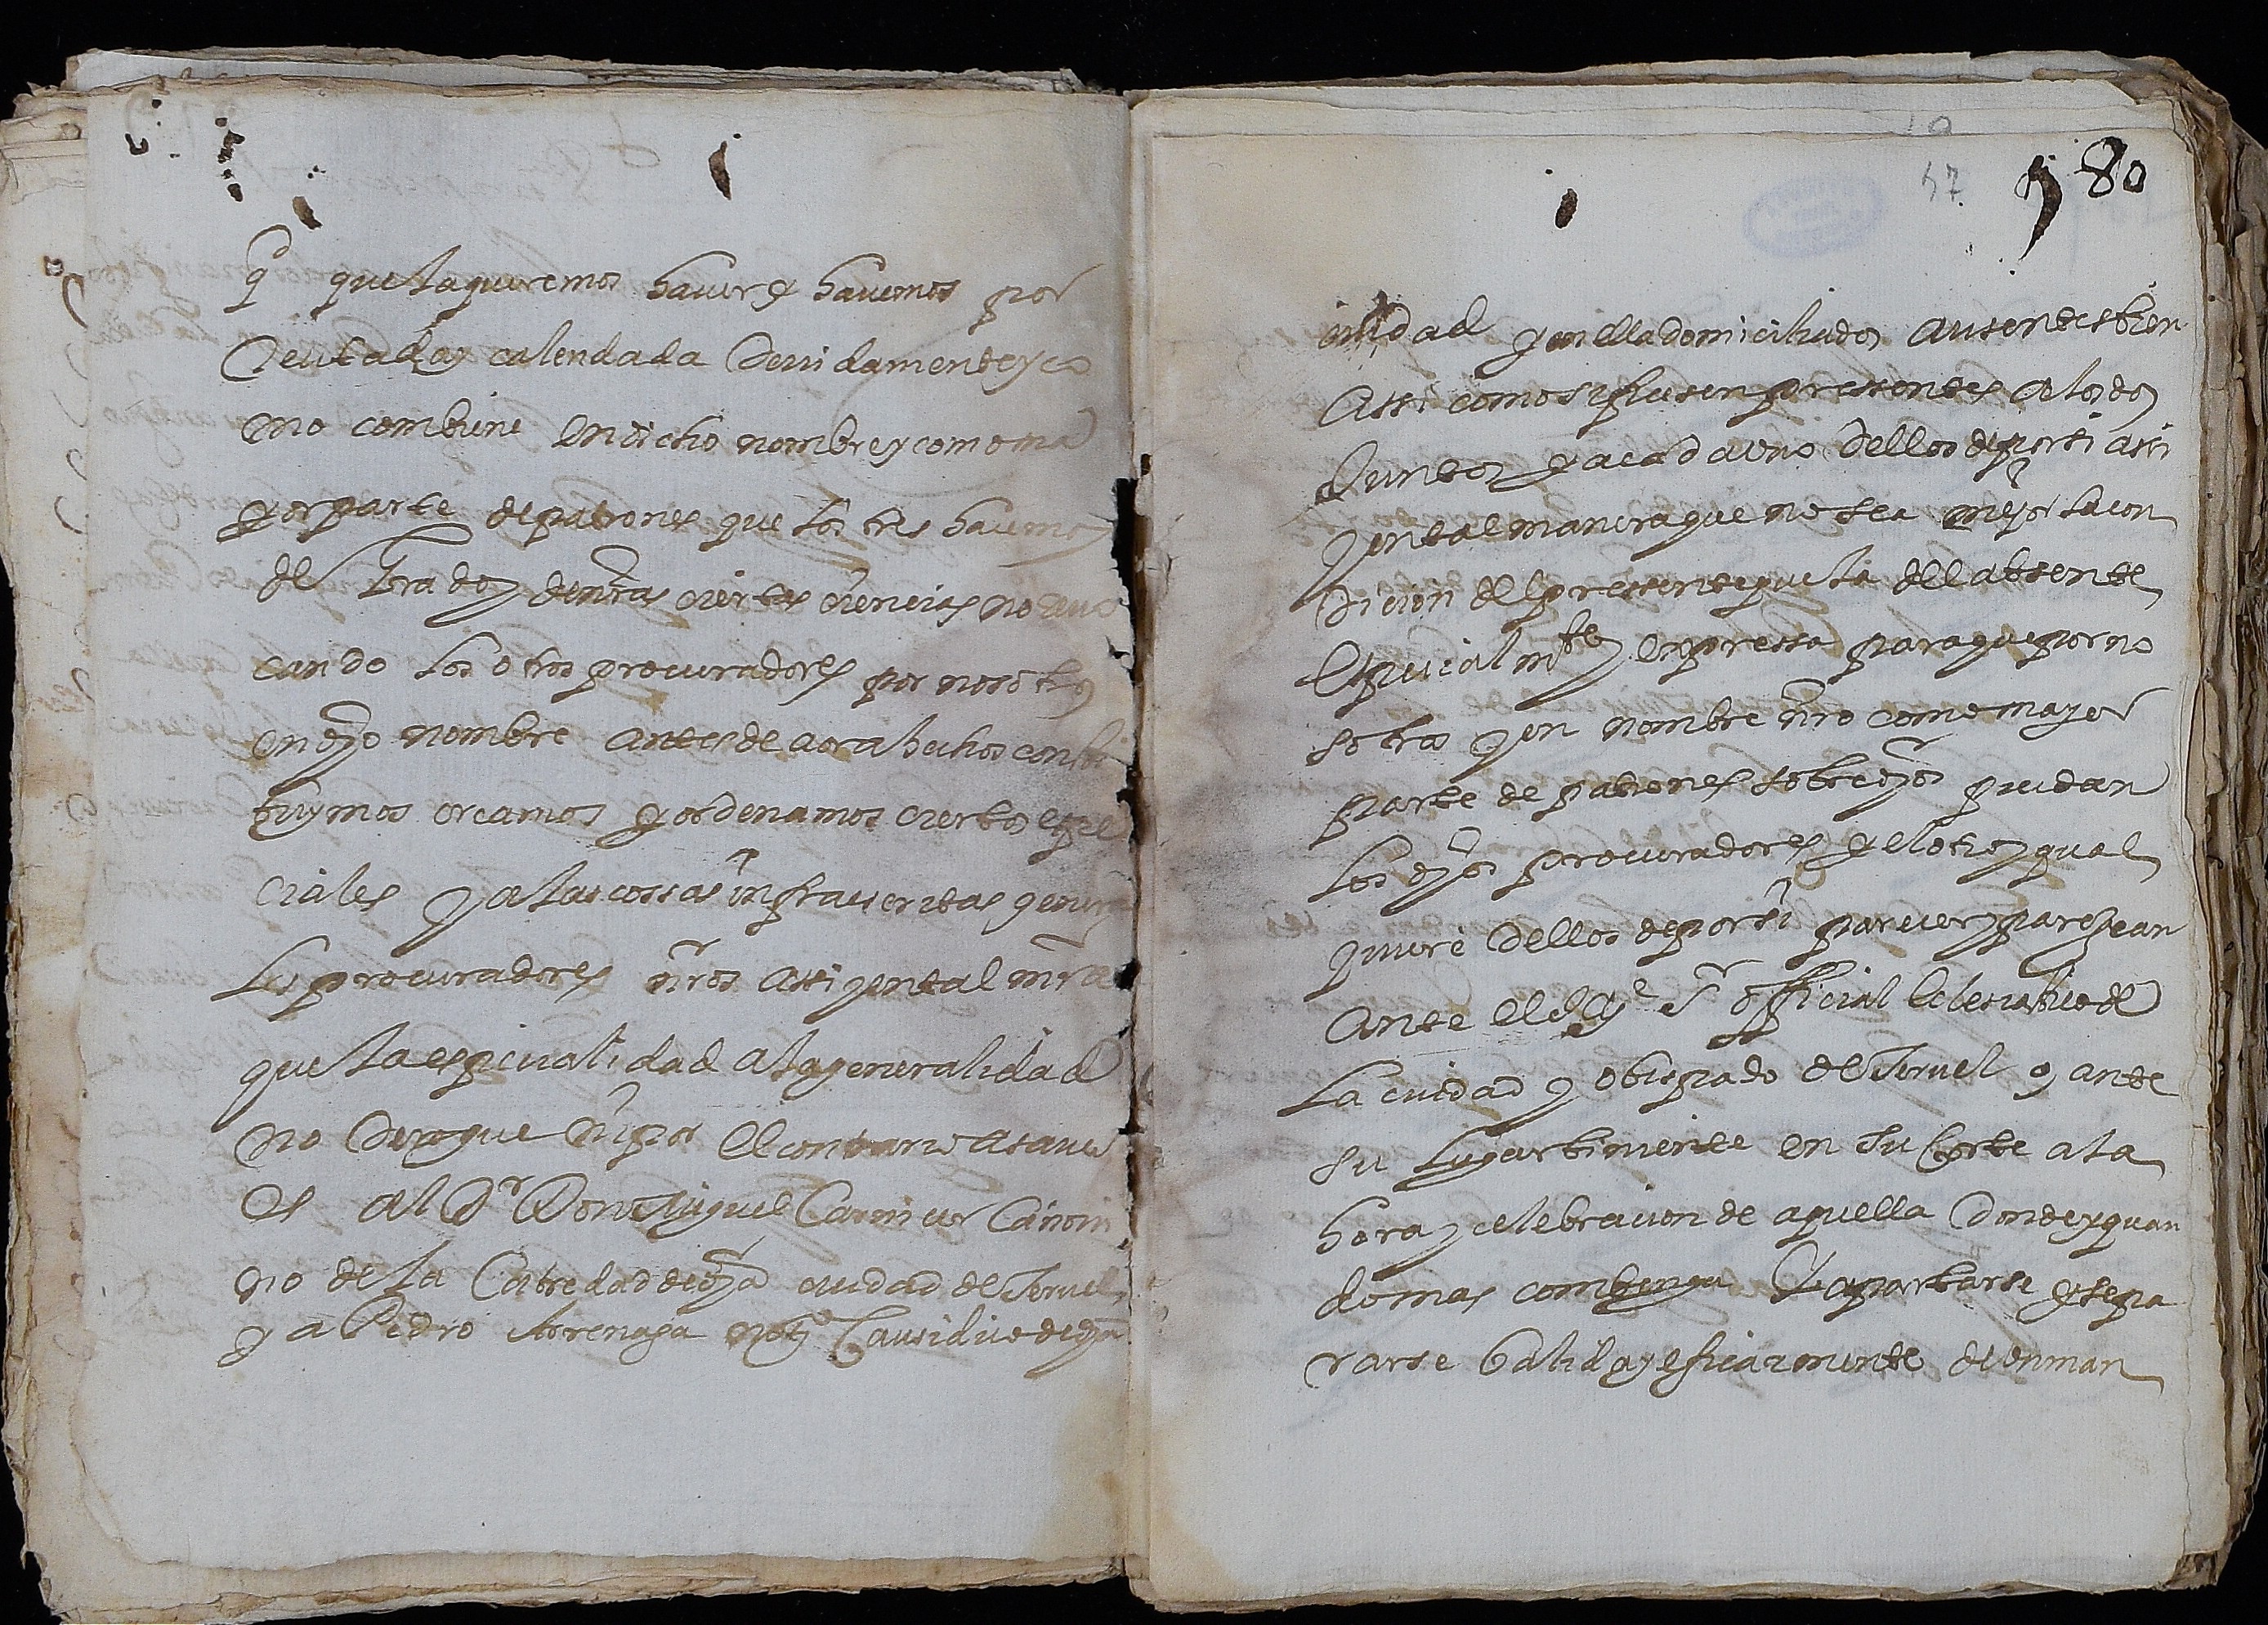 q̃ que la queremos hauer y hauemos por
Recitada y calendada deuidamente y co
mo combiene en dicho nombre y como ma
yor parte de patrones que los tres hauemos
de grado y de nr̃as ciertas ciencias no reuo
cando los otros procuradores por nosotros
en dho nombre antes de aora hechos consti
tuymos creamos y ordenamos ciertos espe
ciales y a las cossas infrascritas genera
les procuradores nr̃os assi y en tal mr̃a
que la especialidad a la generalidad
no derogue ni por el contrario a sauer
es al Dr Don Miguel Carnicer Canoni
no de la Catredad de dha ciudad de Teruel
y a Pedro Arrenaga notº Causidico de dha
80
57
ciudad y en ella domiciliados ausentes bien
assi como si fuesen pressentes a todos
Juntos y a cada uno dellos de por si assi
y en tal manera que no sea mejor la con
dicion del pressente que la del absente
Especialmte y expressa para que por no
sotros y en nombre nr̃o como mayor
parte de patrones sobredhos puedan
los dhos procuradores y el otro y qual
quiere dellos de por si parecer y parezcan
Ante el Illẽ Sr official Eclesiastico de
la ciudad y obispado de Teruel y ante
su lugartiniente en su Corte a la
hora y celebracion de aquella donde y quan
do mas combenga y apartarse y sepa
rarse balida y eficazmente de un man